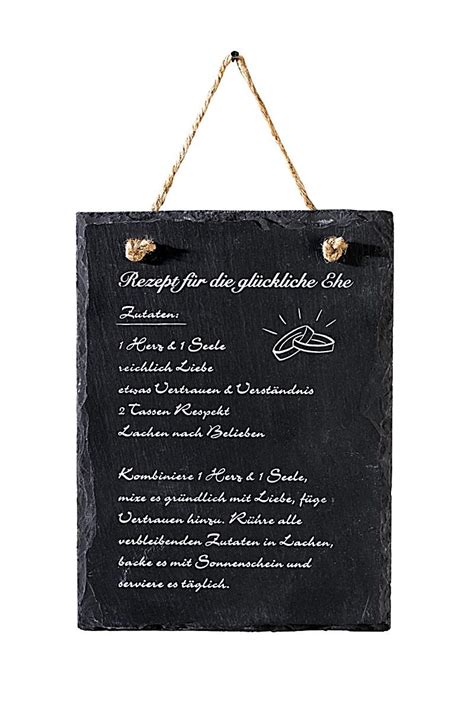 Rezept für die glückliche Ehe
Zutaten:
1 Herz & 1 Seele
reichlich Liebe
etwas Vertrauen & Verständnis
2 Tassen Respekt
Lachen nach Belieben
Kombiniere 1 Herz & 1 Seele,
mixe es gründlich mit Liebe, füge
Vertrauen hinzu. Rühre alle
verbleibenden Zutaten in Lachen,
backe es mit Sonnenschein und
serviere es täglich.